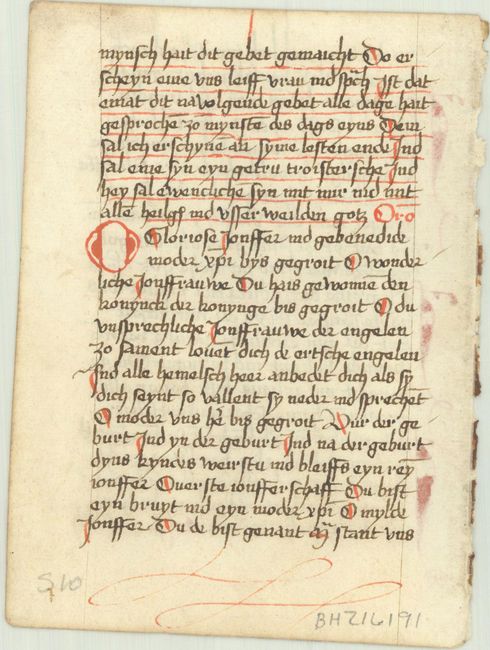 mynsch hait dit gebet gemaicht Do er
scheyn eme vns leiff vrau ind sp̄ch Ist dat
emat dit navolgende gebet alle dage hait
gesprochē zo mynste des dags eyns Dem
sal ich erschynē an syme lesten ende Ind
sal eme syn eyn getru troistersche Ind
hey sal ewencliche syn mit mir ind mit
allē heilgē ind vsserweilden gotz Oro
O Gloriose Jonffer ind gebenedide
moder xpi bys gegroit O wonder
liche Jonffrauwe Du hais gewonnē den
konynck der konynge bis gegroit O du
vnsprechliche Jonffrauwe der engelen
zo sament louēt dich de ertsche engelen
Ind alle hemelsch heer anbedēt dich als sy
dich seynt so vallent sy neder ind sprechēt
O moder vns hēr bis gegroit Vur der ge
burt Ind yn der geburt Ind na der geburt
dyns kyndes weirstu ind bleiffs eyn rey
ionffer Ouerste ionfferschaff Du bist
eyn bruyt ind eyn moder xpi O mylde
Jonffer Du de bist genant stant vns
S10
BHZ16191